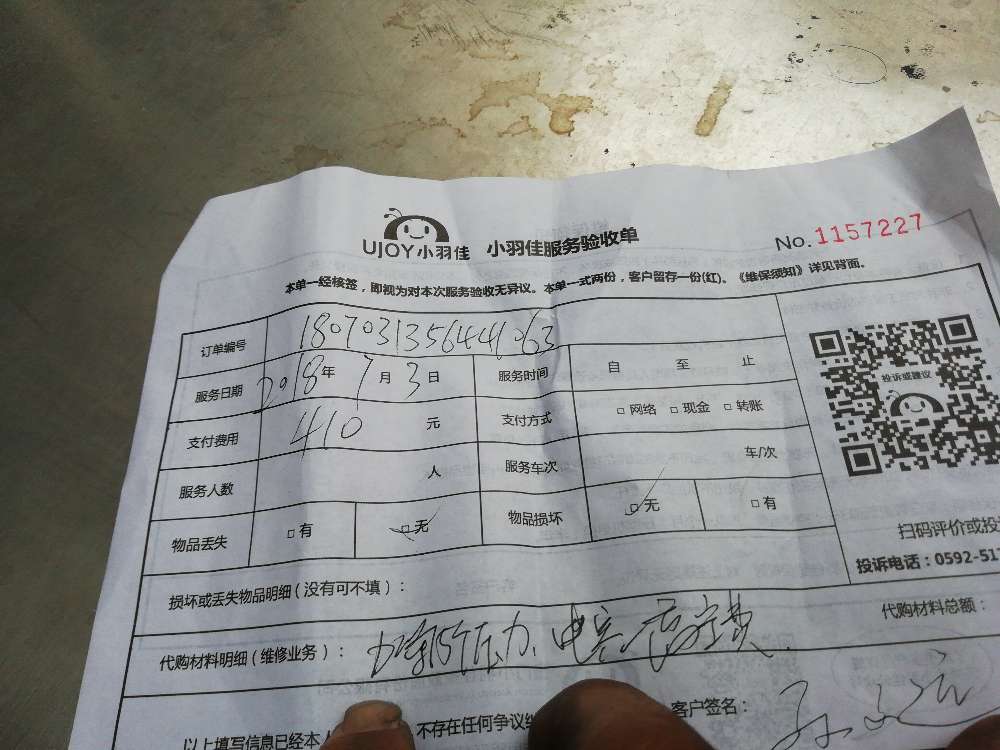 UJOY小羽佳 小羽佳服务验收单 No.1157227
本单一经核签，即视为对本次服务验收无异议。本单一式两份，客户留存一份(红)。《维保须知》详见背面。
订单编号 18070313564441063
服务日期 2018年7月3日 服务时间 自 至 止
支付费用 410 元 支付方式 □网络 □现金 □转账
服务人数 人 服务车次 车/次
物品丢失 □有 □无 物品损坏 □无 □有
投诉或建议
扫码评价或投
投诉电话：0592-51
损坏或丢失物品明细（没有可不填）：
代购材料总额：
代购材料明细（维修业务）： 压力、电容
以上填写信息已经本人 不存在任何争议 客户签名：